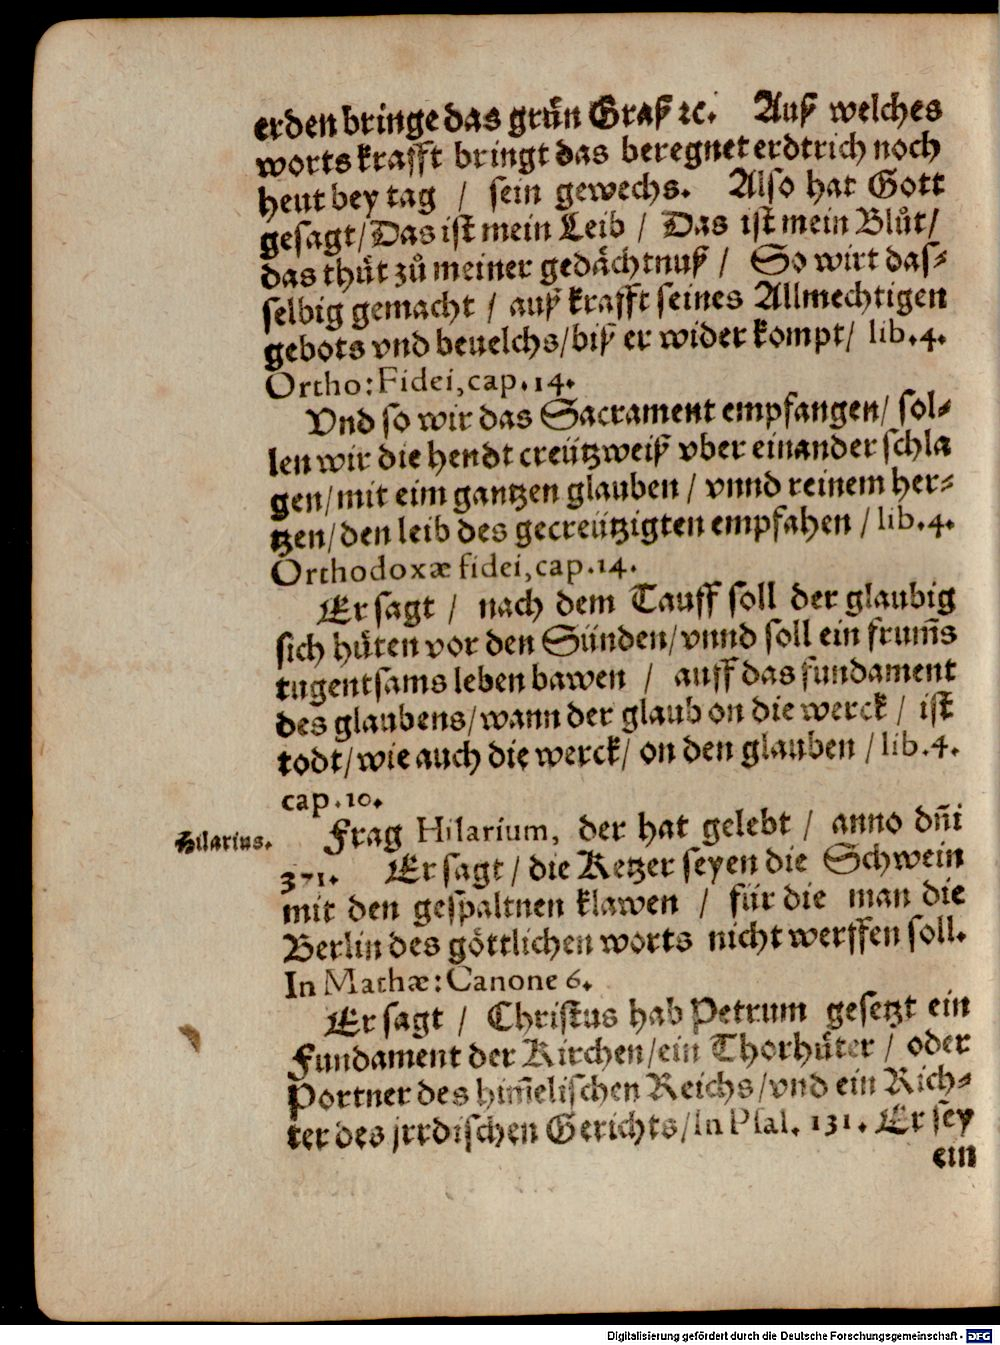 erden bringe das grün Graß ꝛc. Auß welches
worts krafft bringt das beregnet erdtrich noch
heut bey tag / sein gewechs. Also hat Gott
gesagt/Das ist mein Leib / Das ist mein Blůt/
das thůt zů meiner gedächtnuß / So wirt das-
selbig gemacht / auß krafft seines Allmechtigen
gebots vnd beuelchs/biß er wider kompt/ lib.4.
Ortho: Fidei, cap. 14.
Vnd so wir das Sacrament empfangen/ sol-
len wir die hendt creützweiß vber einander schla
gen/mit eim gantzen glauben / vnnd reinem her-
tzen/den leib des gecreützigten empfahen / lib.4.
Orthodoxæ fidei, cap.14.
Er sagt / nach dem Tauff soll der glaubig
sich hüten vor den Sünden/vnnd soll ein frum̃s
tugentsams leben bawen / auff das fundament
des glaubens/wann der glaub on die werck / ist
todt/wie auch die werck/ on den glauben / lib.4.
cap.10.
Hilarius.
Frag Hilarium, der hat gelebt / anno dñi
371. Er sagt / die Ketzer seyen die Schwein
mit den gespaltnen klawen / für die man die
Berlin des göttlichen worts nicht werffen soll.
In Mathæ: Canone 6.
Er sagt / Christus hab Petrum gesetzt ein
Fundament der Kirchen/ein Thorhüter / oder
Portner des him̃elischen Reichs/vnd ein Rich-
ter des jrrdischen Gerichts/In Psal. 131. Er sey
ein
Digitalisierung gefördert durch die Deutsche Forschungsgemeinschaft - DFG